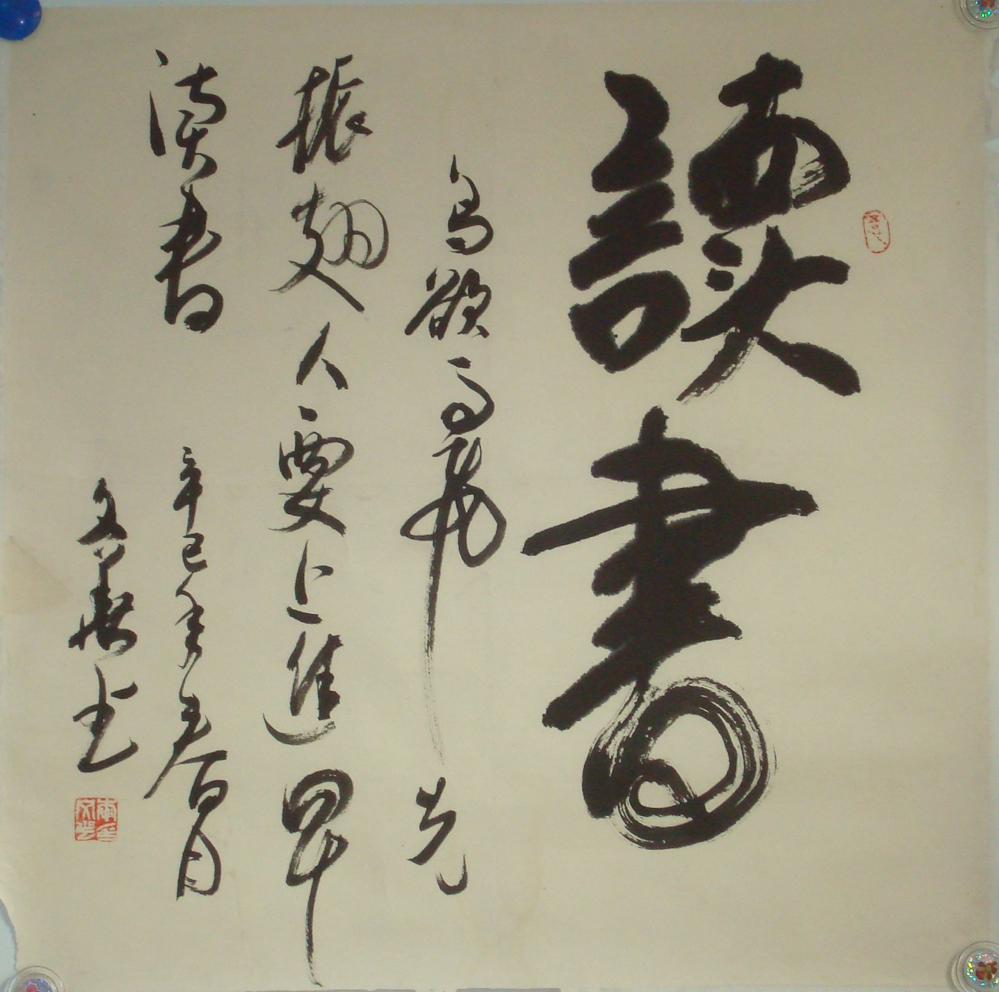 讀書
鸟欲高飛先
振翅人要上進早
读書
辛巳年春月
文